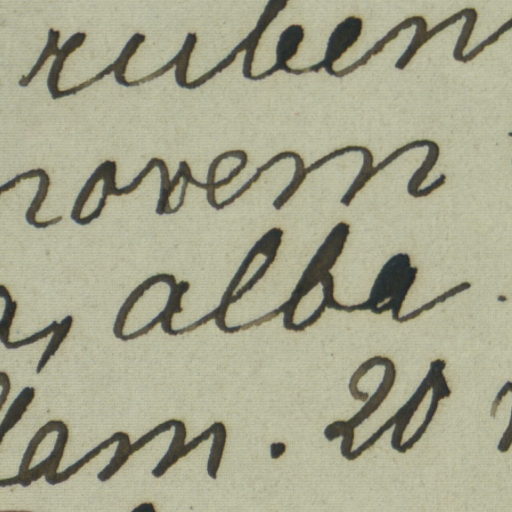 ruben
novem
, alba
lam. 20